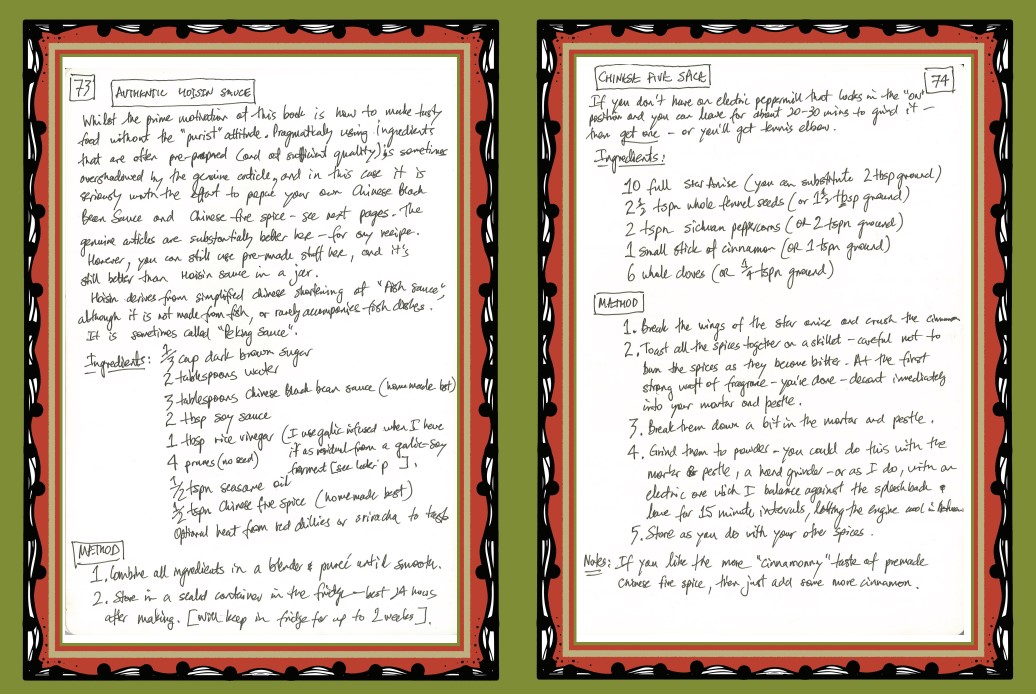 73
AUTHENTIC HOISIN SAUCE
Whilst the prime motivation of this book is how to make tasty
food without the "purist" attitude. Pragmatically using ingredients
that are often pre-prepared (and of sufficient quality) is sometimes
overshadowed by the genuine article, and in this case it is
seriously worth the effort to prepare your own Chinese Black
Bean Sauce and Chinese five spice - see next pages. The
genuine articles are substantially better here - for any recipe.
However, you can still use pre-made stuff here, and it's
still better than Hoisin sauce in a jar.
Hoisin derives from simplified chinese shortening of "Fish Sauce",
although it is not made from fish, or rarely accompanies fish dishes.
It is sometimes called "Peking Sauce".
Ingredients: 2/3 cup dark brown sugar
2 tablespoons water
3 tablespoons Chinese Black bean sauce (homemade best)
2 tbsp soy sauce
1 tbsp rice vinegar (I use garlic infused when I have
it as residual from a garlic-soy
ferment [see later p ].
4 prunes (no seed)
1/2 tspn seasame oil
1/2 tspn Chinese five spice (homemade best)
Optional heat from red chillies or sriracha to taste
METHOD
1. Combine all ingredients in a blender & pureé until smooth.
2. Store in a sealed container in the fridge - best 24 hours
after making. [Will keep in fridge for up to 2 weeks].
CHINESE FIVE SPICE
74
If you don't have an electric peppermill that locks in the "on"
position and you can leave for about 20-30 mins to grind it -
then get one - or you'll get tennis elbow.
Ingredients:
10 full star Anise (you can substitute 2 tbsp ground)
2 1/2 tspn whole fennel seeds (or 1 1/2 tbsp ground)
2 tspn sichuan peppercorns (or 2 tspn ground)
1 small stick of cinnamon (OR 1 tspn ground)
6 whole cloves (OR 1/4 tspn ground)
METHOD
1. Break the wings of the star anise and crush the cinnamon
2. Toast all the spices together on a skillet - careful not to
burn the spices as they become bitter. At the first
strong waft of fragrance - you're done - decant immediately
into your mortar and pestle.
3. Break them down a bit in the mortar and pestle.
4. Grind them to powder - you could do this with the
mortar & pestle, a hand grinder - or as I do, with an
electric one which I balance against the splashback &
leave for 15 minute intervals, letting the engine cool in between
5. Store as you do with your other spices.
Notes: If you like the more "cinnamonny" taste of premade
Chinese five spice, then just add some more cinnamon.